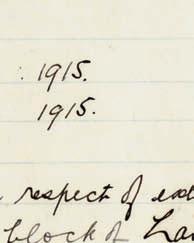 1915.
1915.
respect of
block of